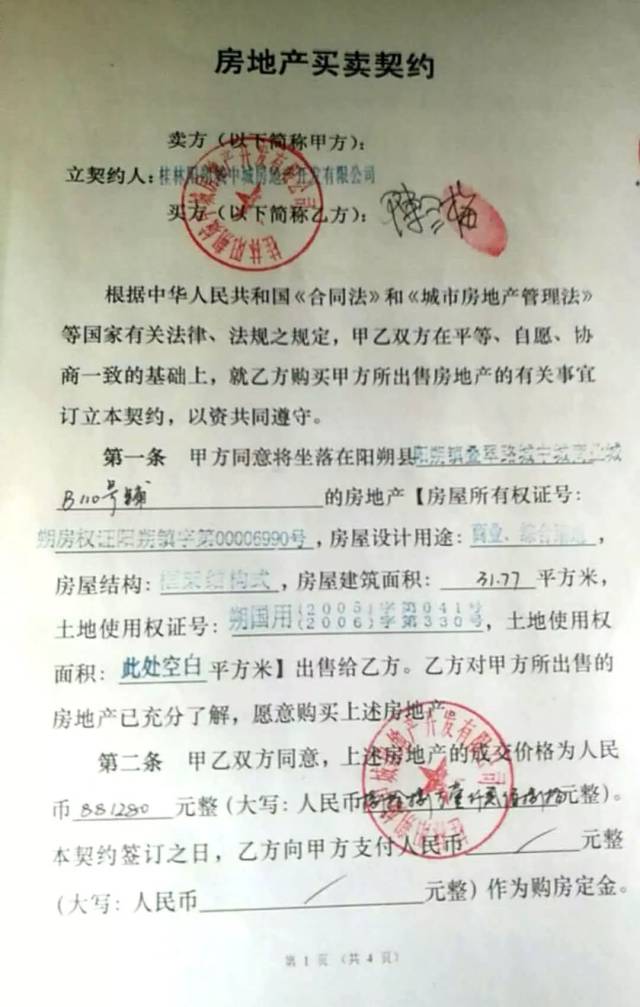 房地产买卖契约
卖方（以下简称甲方）：
立契约人：桂林阳朔城中城房地产开发有限公司
买方（以下简称乙方）：陈三梅
根据中华人民共和国《合同法》和《城市房地产管理法》
等国家有关法律、法规之规定，甲乙双方在平等、自愿、协
商一致的基础上，就乙方购买甲方所出售房地产的有关事宜
订立本契约，以资共同遵守。
第一条 甲方同意将坐落在阳朔县阳朔镇叠翠路城中城商业城
B110号铺的房地产【房屋所有权证号：
朔房权证阳朔镇字第00006990号，房屋设计用途：商业、综合用地，
房屋结构：框架结构式，房屋建筑面积：31.77平方米，
土地使用权证号：朔国用(2005)字第041号
(2006)字第330号，土地使用权
面积：此处空白平方米】出售给乙方。乙方对甲方所出售的
房地产已充分了解，愿意购买上述房地产。
第二条 甲乙双方同意，上述房地产的成交价格为人民
币881280元整（大写：人民币元整）。
本契约签订之日，乙方向甲方支付人民币/元整
（大写：人民币/元整）作为购房定金。
第 1 页（共 4 页）